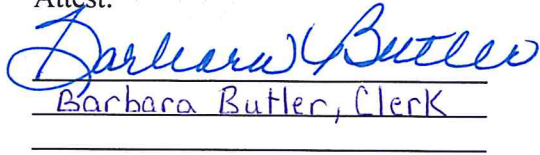 Attest:
Barbara Butler
Barbara Butler, Clerk